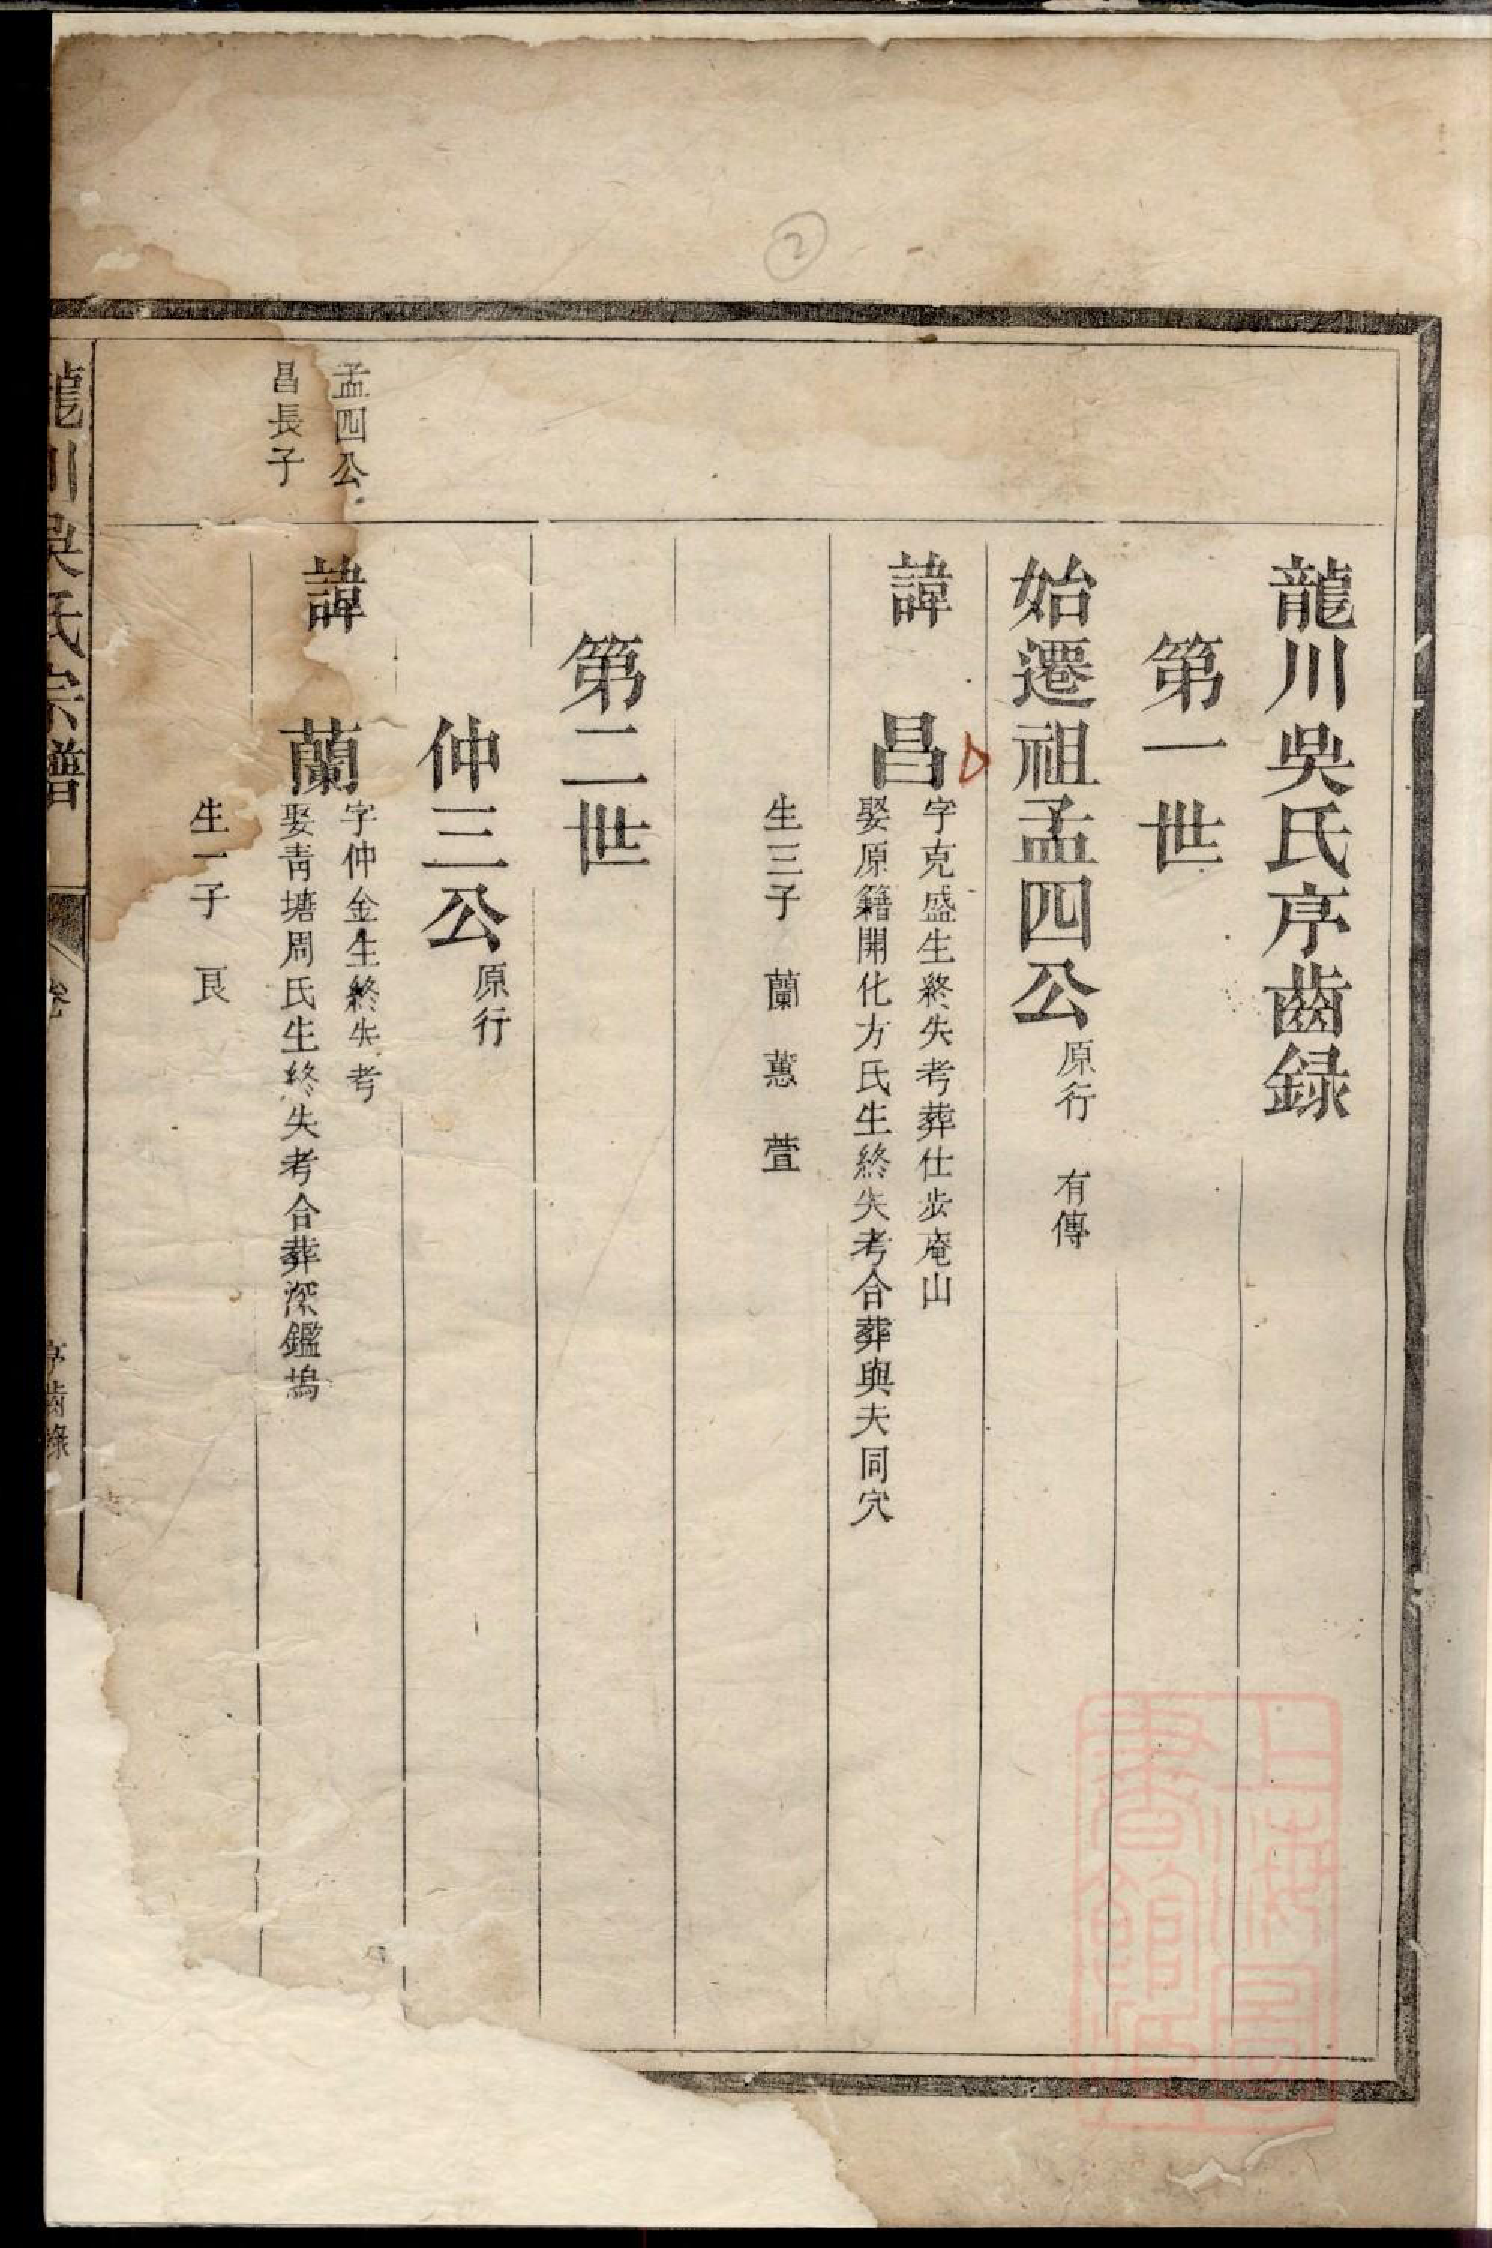 ②
龍川吳氏序齒錄
第一世
始遷祖孟四公原行 有傳
諱 昌
字克盛生終失考葬仕步庵山
娶原籍開化方氏生終失考合葬與夫同穴
生三子 蘭 蕙 萱
第二世
仲三公原行
孟四公
昌長子
諱 蘭
字仲金生終失考
娶青塘周氏生終失考合葬深鑑塢
生一子 艮
龍川吳氏宗譜
卷
序齒錄
上海圖書館藏